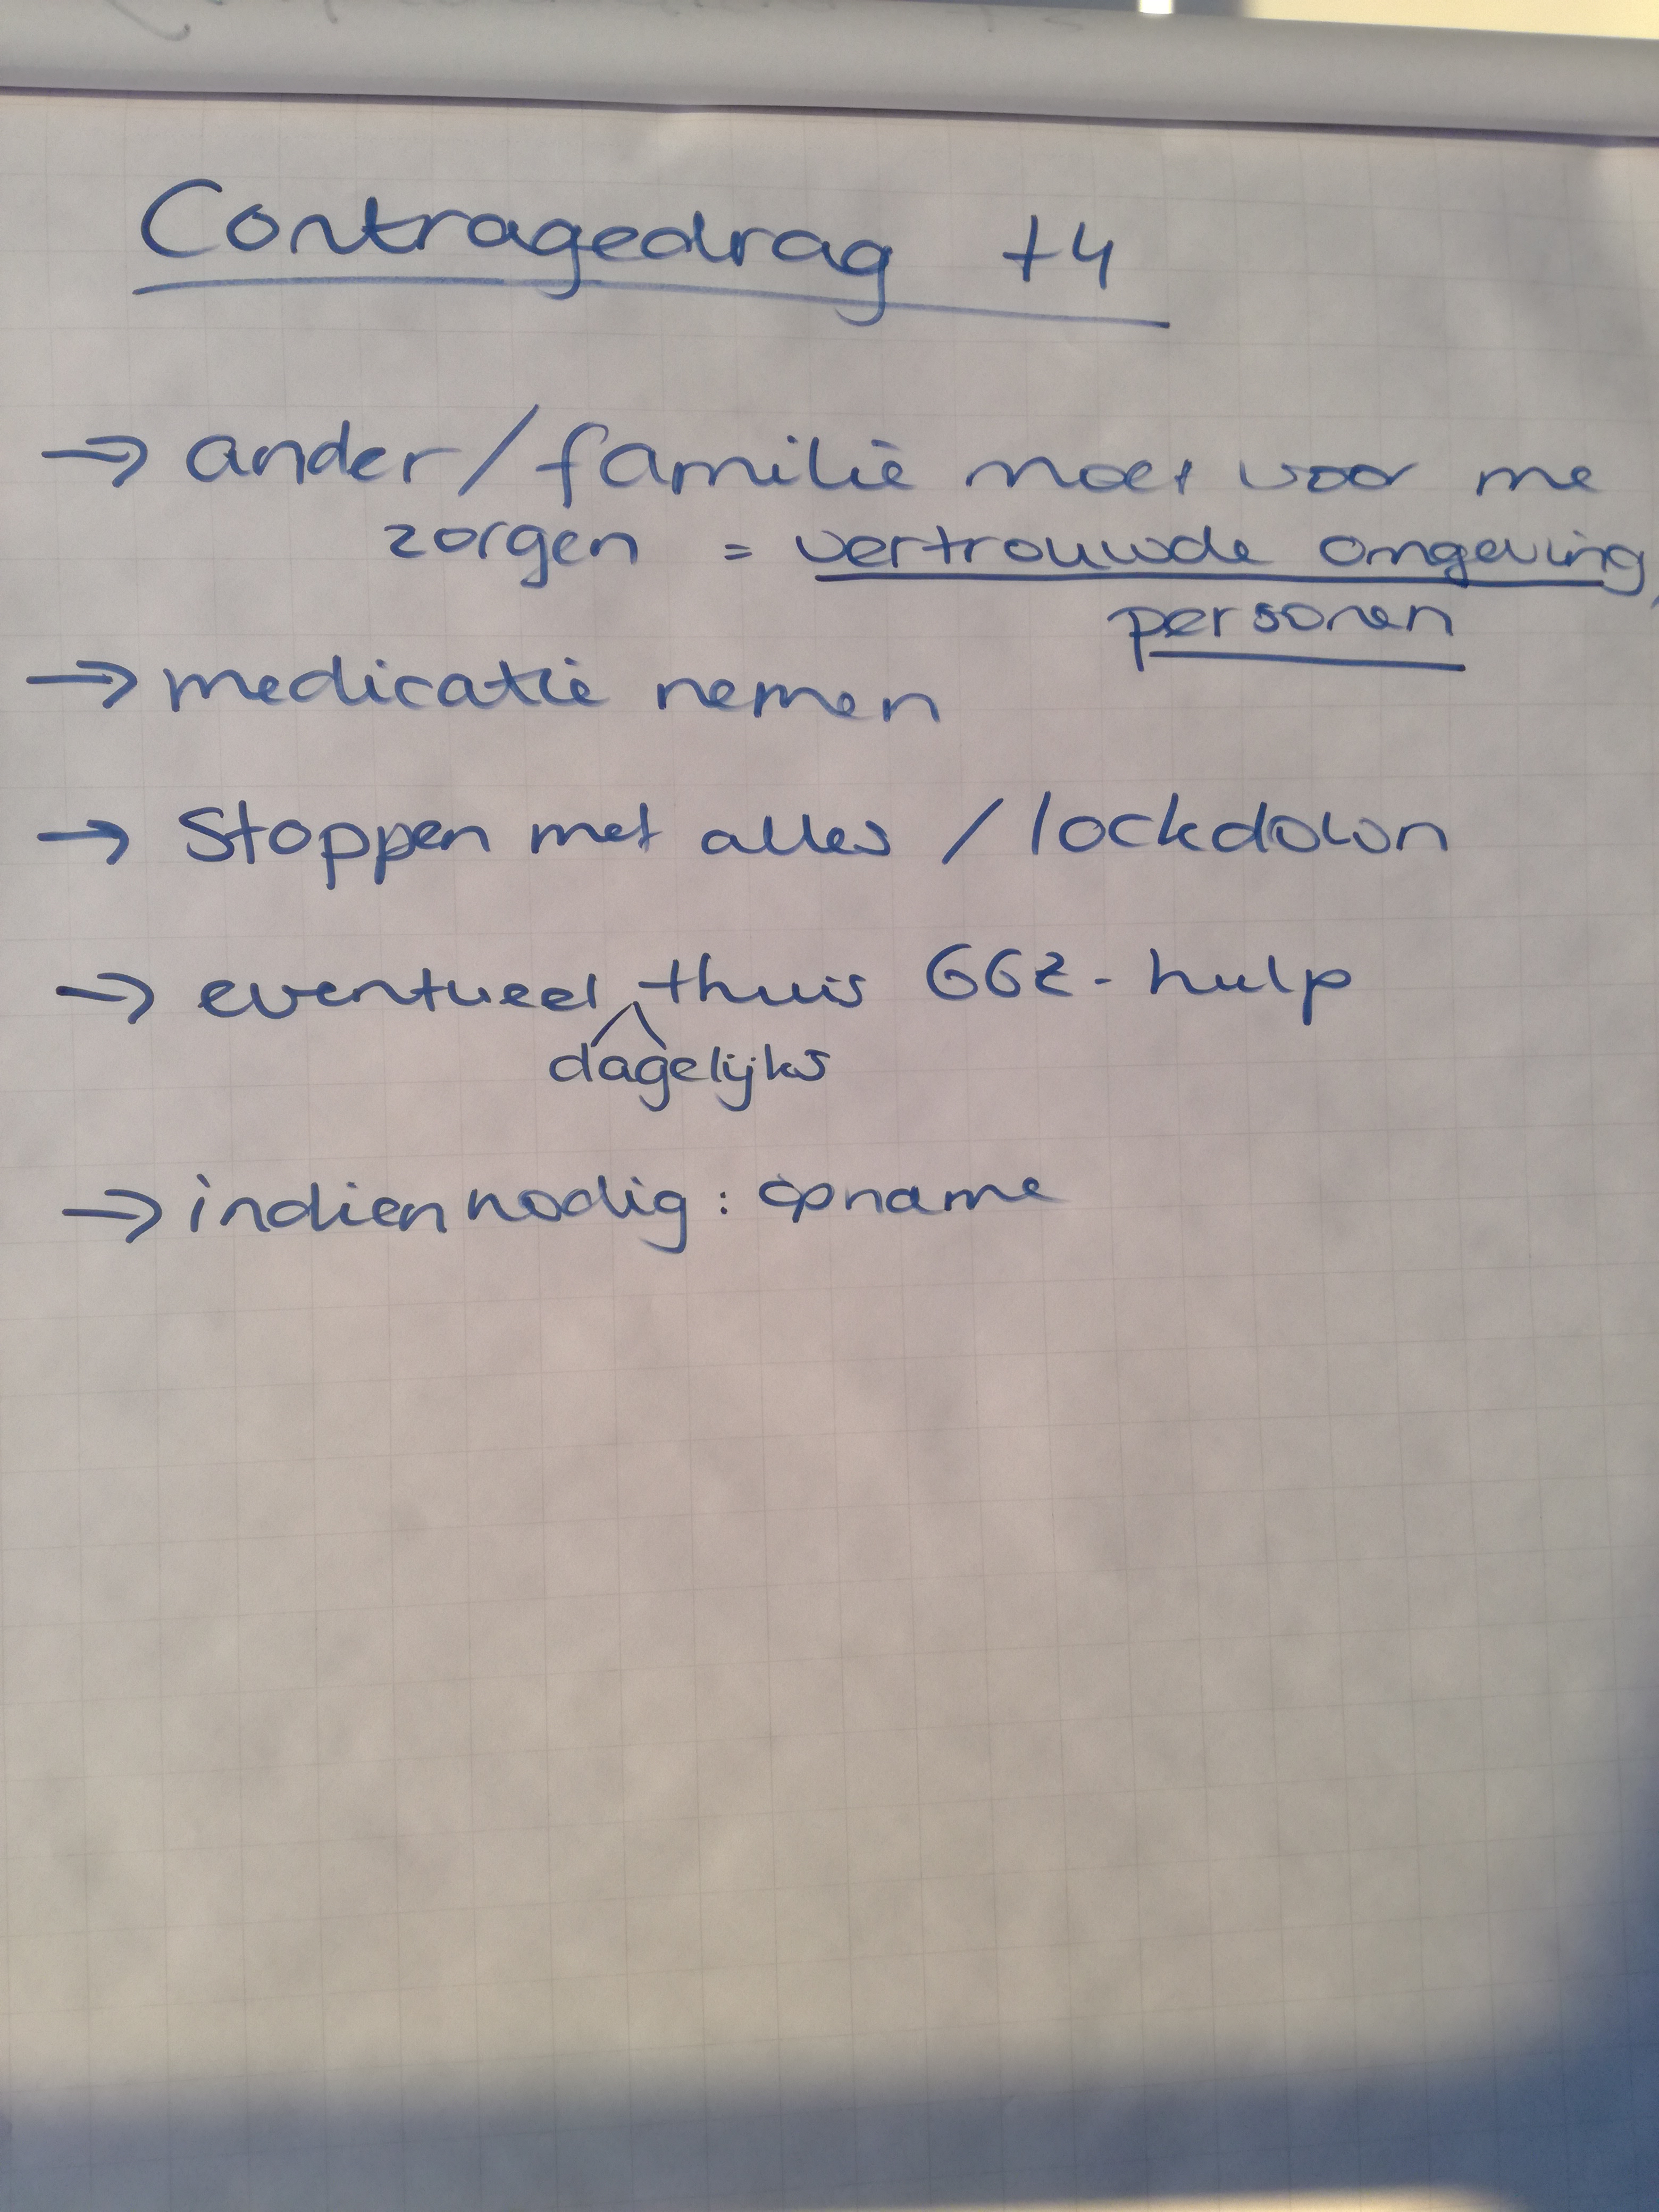 Contragedrag +4
→ ander/familie moet voor me
zorgen = vertrouwde omgeving,
personen
→ medicatie nemen
→ Stoppen met alles / lockdown
→ eventueel thuis GGZ-hulp
dagelijks
→ indien nodig: opname